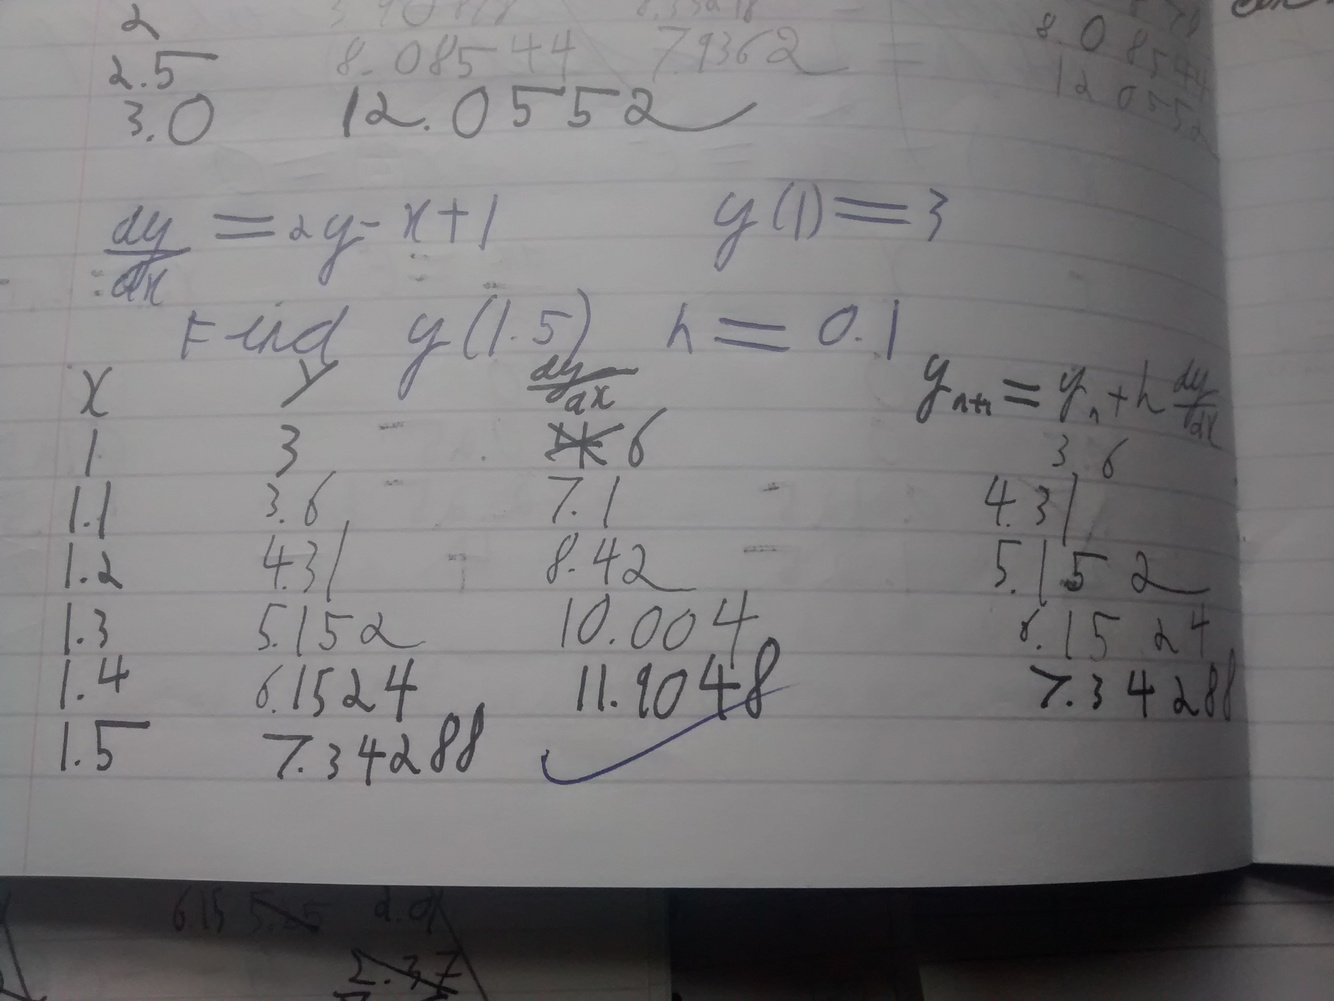 2
2.5 8.08544 7.9362 = 8.08544
3.0 12.0552 12.0552
dy/dx = 2y - x + 1 y(1) = 3
Find y(1.5) h = 0.1
x y dy/dx yn+1 = yn + h dy/dx
1 3 6 3.6
1.1 3.6 7.1 4.31
1.2 4.31 8.42 5.152
1.3 5.152 10.004 6.1524
1.4 6.1524 11.9048 7.34288
1.5 7.34288
615